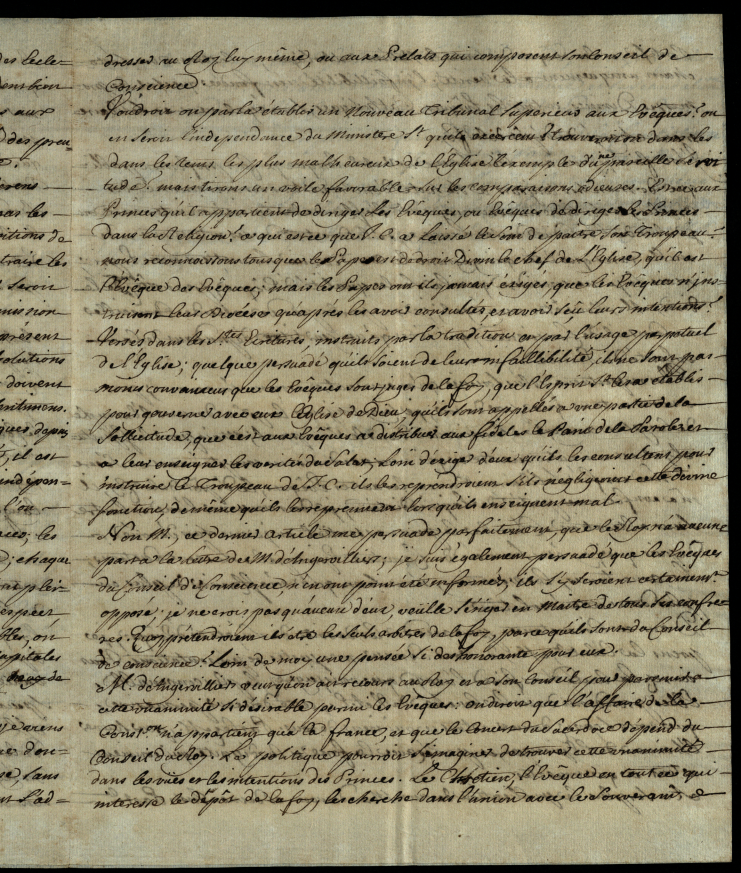 des Eccle=
dressés au Roy luy même, ou aux Prelats qui composent son Conseil de
Conscience
s aux
Voudroit on par la établir un Nouveau Tribunal Superieur aux Evêques? ou
des preu=
en seroit l'independance du Ministere St qu'ils exercent? trouveroit on dans les
dans les tems les plus malheureux de l'Eglise l'exemple d'une pareille servi
tude? mais tirons un voile favorable sur les comparaisons odieuses. Est ce aux
Princes qu'il appartient de diriger les Evêques, ou Evêques de diriger les Princes
itions de
dans la Religion? a qui est ce que J. C. a laissé le soin de paitre son Troupeau?
traire les
nous reconnoissons tous que le Pape est de droit Divin le chef de L'Eglise, qu'il est
seroit
l'Evêque des Evêques; mais les Papes ont ils jamais exigés, que les Evêques n'ins
mission
truisent leurs Dioceses qu'après les avoir consultés, et avoir sçu leurs intentions?
présent
Versés dans les Stes Ecritures, instruits par la tradition ou par l'usage perpetuel
solutions
de l'Eglise; quelque persuadé qu'ils soient de leur infaillibilité, ils ne sont pas
doivent
moins convaincus que les Evêques sont juges de la foy, que l'Esprit St les a établis
pour gouverner avec eux l'Eglise de Dieu, qu'ils sont appellés a une partie de la
ques, depuis
sollicitude, que c'est aux Evêques a distribuer aux fideles le Pain de la Parole et
il est
a leur enseigner les verités du Salut; Loin d'exiger d'eux qu'ils les consultent pour
indépen=
instruire le Troupeau de J. C. ils les reprendroient s'ils negligeoient cette divine
l'ou
fonction, de même qu'ils les reprennent lors qu'ils enseignent mal.
les
Non M., ce dernier article me persuade parfaitement, que le Roy n'a aucune
chaque
part a la lettre de M. d'Angervilliers; je suis également persuadé que les Evêques
du Conseil de Conscience n'en ont point été informés; ils s'y seroient certainemt
opposé; je ne crois pas qu'aucun d'eux, veuille s'eriger en Maitre de tous ses confre
on
res. Quoy prétendroient ils être les seuls arbitres de la foy, parce qu'ils sont du Conseil
capitales
de conscience? Loin de moy une pensée si deshonorante pour eux.
de
M. d'Angervilliers veut qu'on ait recours au Roy et a son Conseil pour parvenir a
cette unanimité si désirable parmi les Evêques: on diroit que l'affaire de la
Constion n'appartient qu'a la france, et que le Concert du Sacerdoce dépend du
Conseil du Roy. La politique pourroit s'imaginer de trouver cette unanimité
sans
dans les vües et les intentions des Princes. Le Chretien, l'Evêque en tout ce qui
t d'ad=
interesse le dépôt de la foy, la cherche dans l'union avec le Souverain